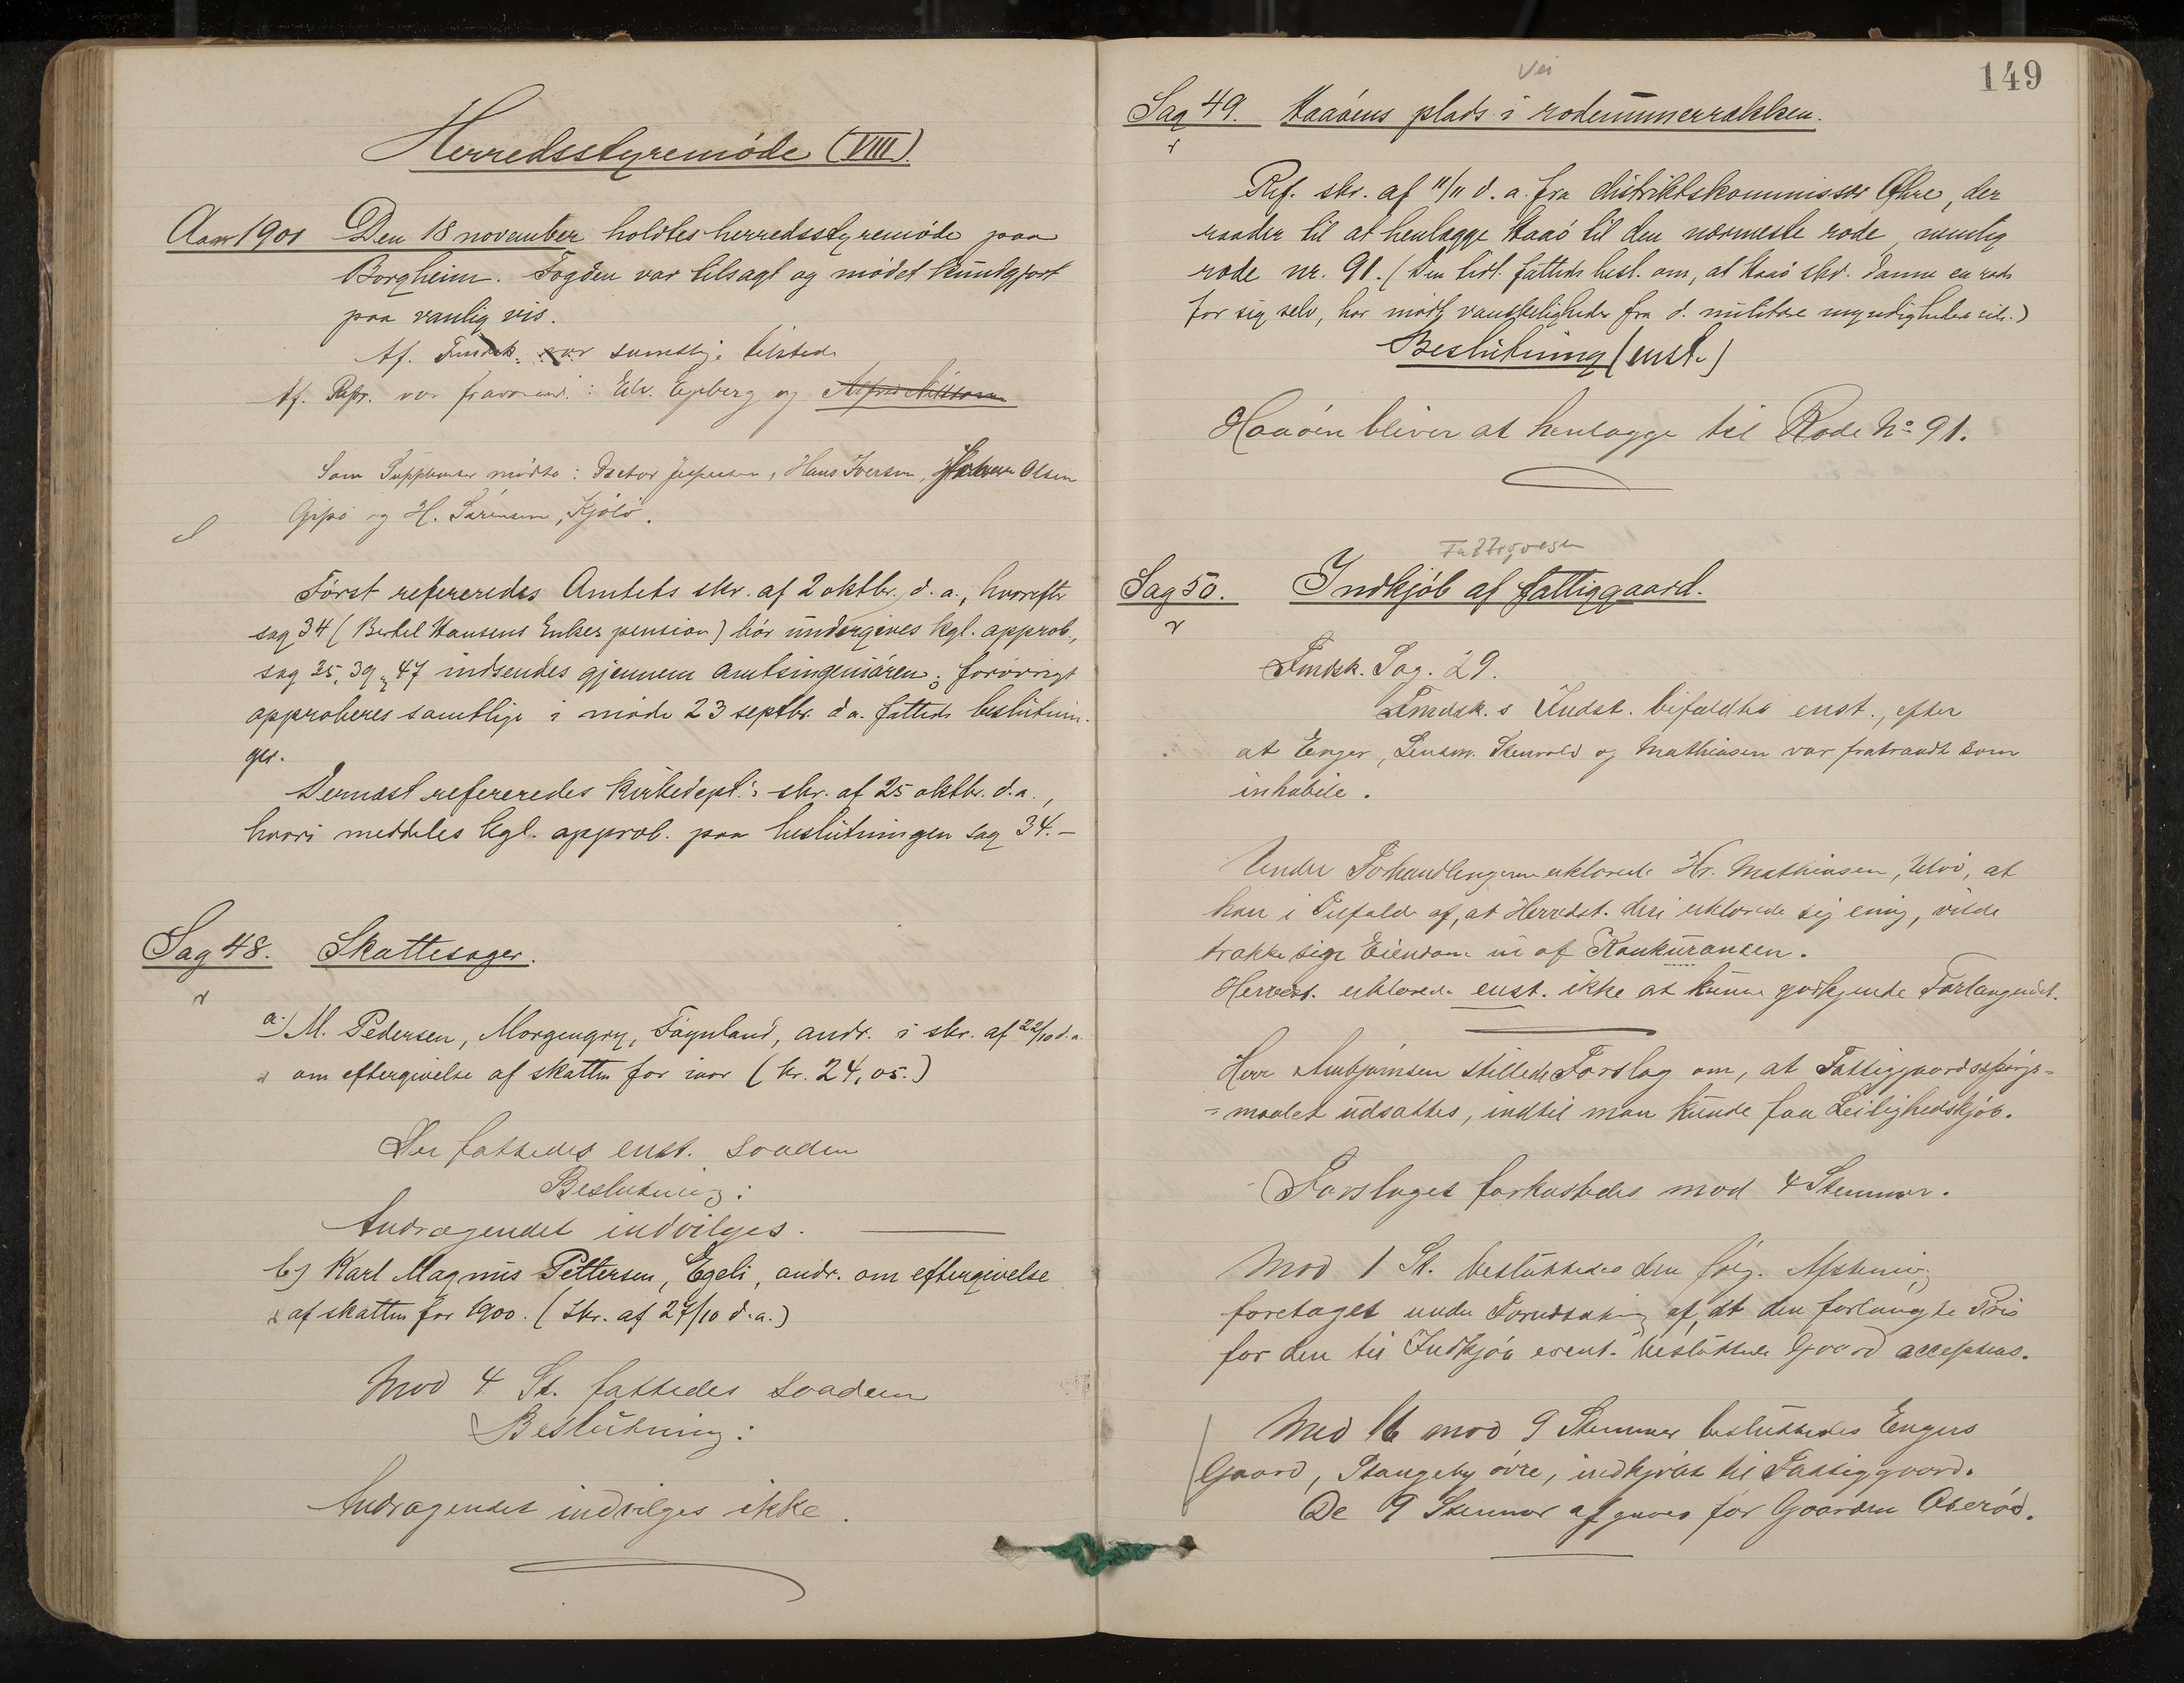 Herredsstyremöde (VIII).
Aar 1901 Den 18 november holdtes herredsstyremöde paa
Borgheim. Fogden var tilsagt og mödet kundgjort
paa vanlig vis.
Af. Fmdsk. var samtlige tilstede
Af. Repr. var fraværend.: Edv. Egeberg og
Som Supplanter mödte: Doctor Jespersen, Hans Iversen, Johan Olsen
Gipö og H. Sörensen, Kjölö.
Först refereredes Amtets skr. af 2 oktbr. d. a., hvorefter
sag 34 (Bertel Hansens Enkes pension) bör undergives kgl. approb.,
sag 25, 39 og 47 indsendes gjennem amtsingeniören; forövrigt
approberes samtlige i möde 23 septbr. d. a. fattede beslutnin-
ger.
Dernæst refereredes Kirkedept.s skr. af 25 oktbr. d. a.,
hvori meddeles kgl. approb. paa beslutningen sag 34.–
Sag 48. Skattesager.
a.) M. Pedersen, Morgengry, Föynland, andr. i skr. af 22/10 d. a.
om eftergivelse af skatten for iaar (kr. 24,05.)
Der fattedes enst. saaden
Beslutning:
Andragendet indvilges.
b) Karl Magnus Pettersen, Egeli, andr. om eftergivelse
af skatten for 1900. (Skr. af 27/10 d. a.)
Mod 4 St. fattedes saaden
Beslutning:
Andragendet indvilges ikke.
149
Vei
Sag 49. Haaöens plads i rodenummerrækken.
Ref. skr. af 11/11 d. a. fra distriktskommissær Øhre, der
raader til at henlægge Haaö til den nærmeste rode, nemlig
rode nr. 91. (Den tidl. fattede besl. om, at Haaö skd. danne en rode
for sig selv, har mödt vanskeligheder fra d. militære myndigheders side.)
Beslutning (enst.)
Haaöen bliver at henlægge til Rode No 91.
Fattigvesen
Sag 50. Indkjöb af fattiggaard.
Fmdsk. Sag. 29.
Fmdsk.s Indst. bifaldtes enst., efter
at Enger, Lensm. Stenvold og Mathiasen var fratraadt som
inhabile.
Under Forhandlingerne erklærede Hr. Mathiasen, Ulvö, at
han i Tilfælde af, at Herredst. deri erklærede sig enig, vilde
trække sin Eiendom ud af Konkurancen.
Herredst. erklærede enst. ikke at kunne godkjende Forlangendet.
Herr Anbjörnsen stillede Forslag om, at Fattiggaardsspörgs=
=maalet udsattes, indtil man kunde faa Leilighedskjöb.
Forslaget forkastedes mod 4 Stemmer.
Mod 1 St. besluttedes den fölg. Afstemning
foretaget under Forudsætning af, at den forlangte Pris
for den til Indkjöb event. besluttede Gaard accepteres.
Med 16 mod 9 Stemmer besluttedes Engers
Gaard, Stangeby övre, indkjöbt til Fattiggaard.
De 9 Stemmer afgaves for Gaarden Oseröd.